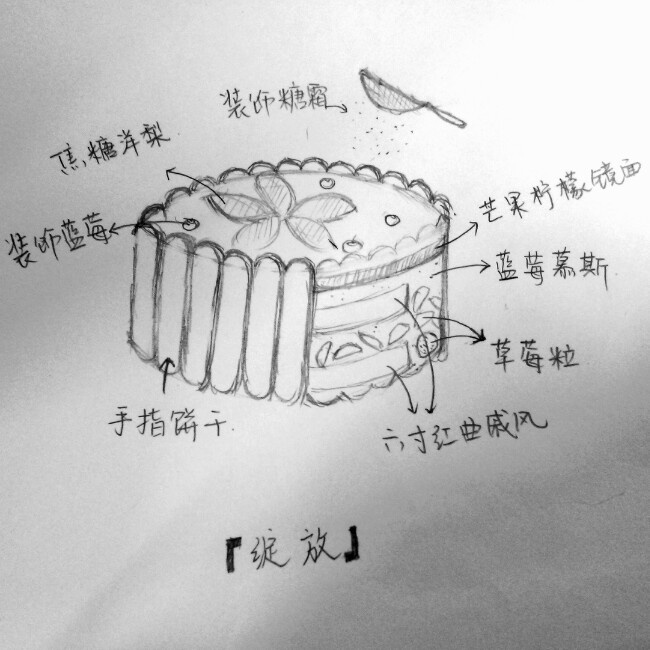 装饰糖霜
焦糖洋梨
芒果柠檬镜面
装饰蓝莓
蓝莓慕斯
草莓粒
手指饼干
六寸红曲戚风
『绽放』